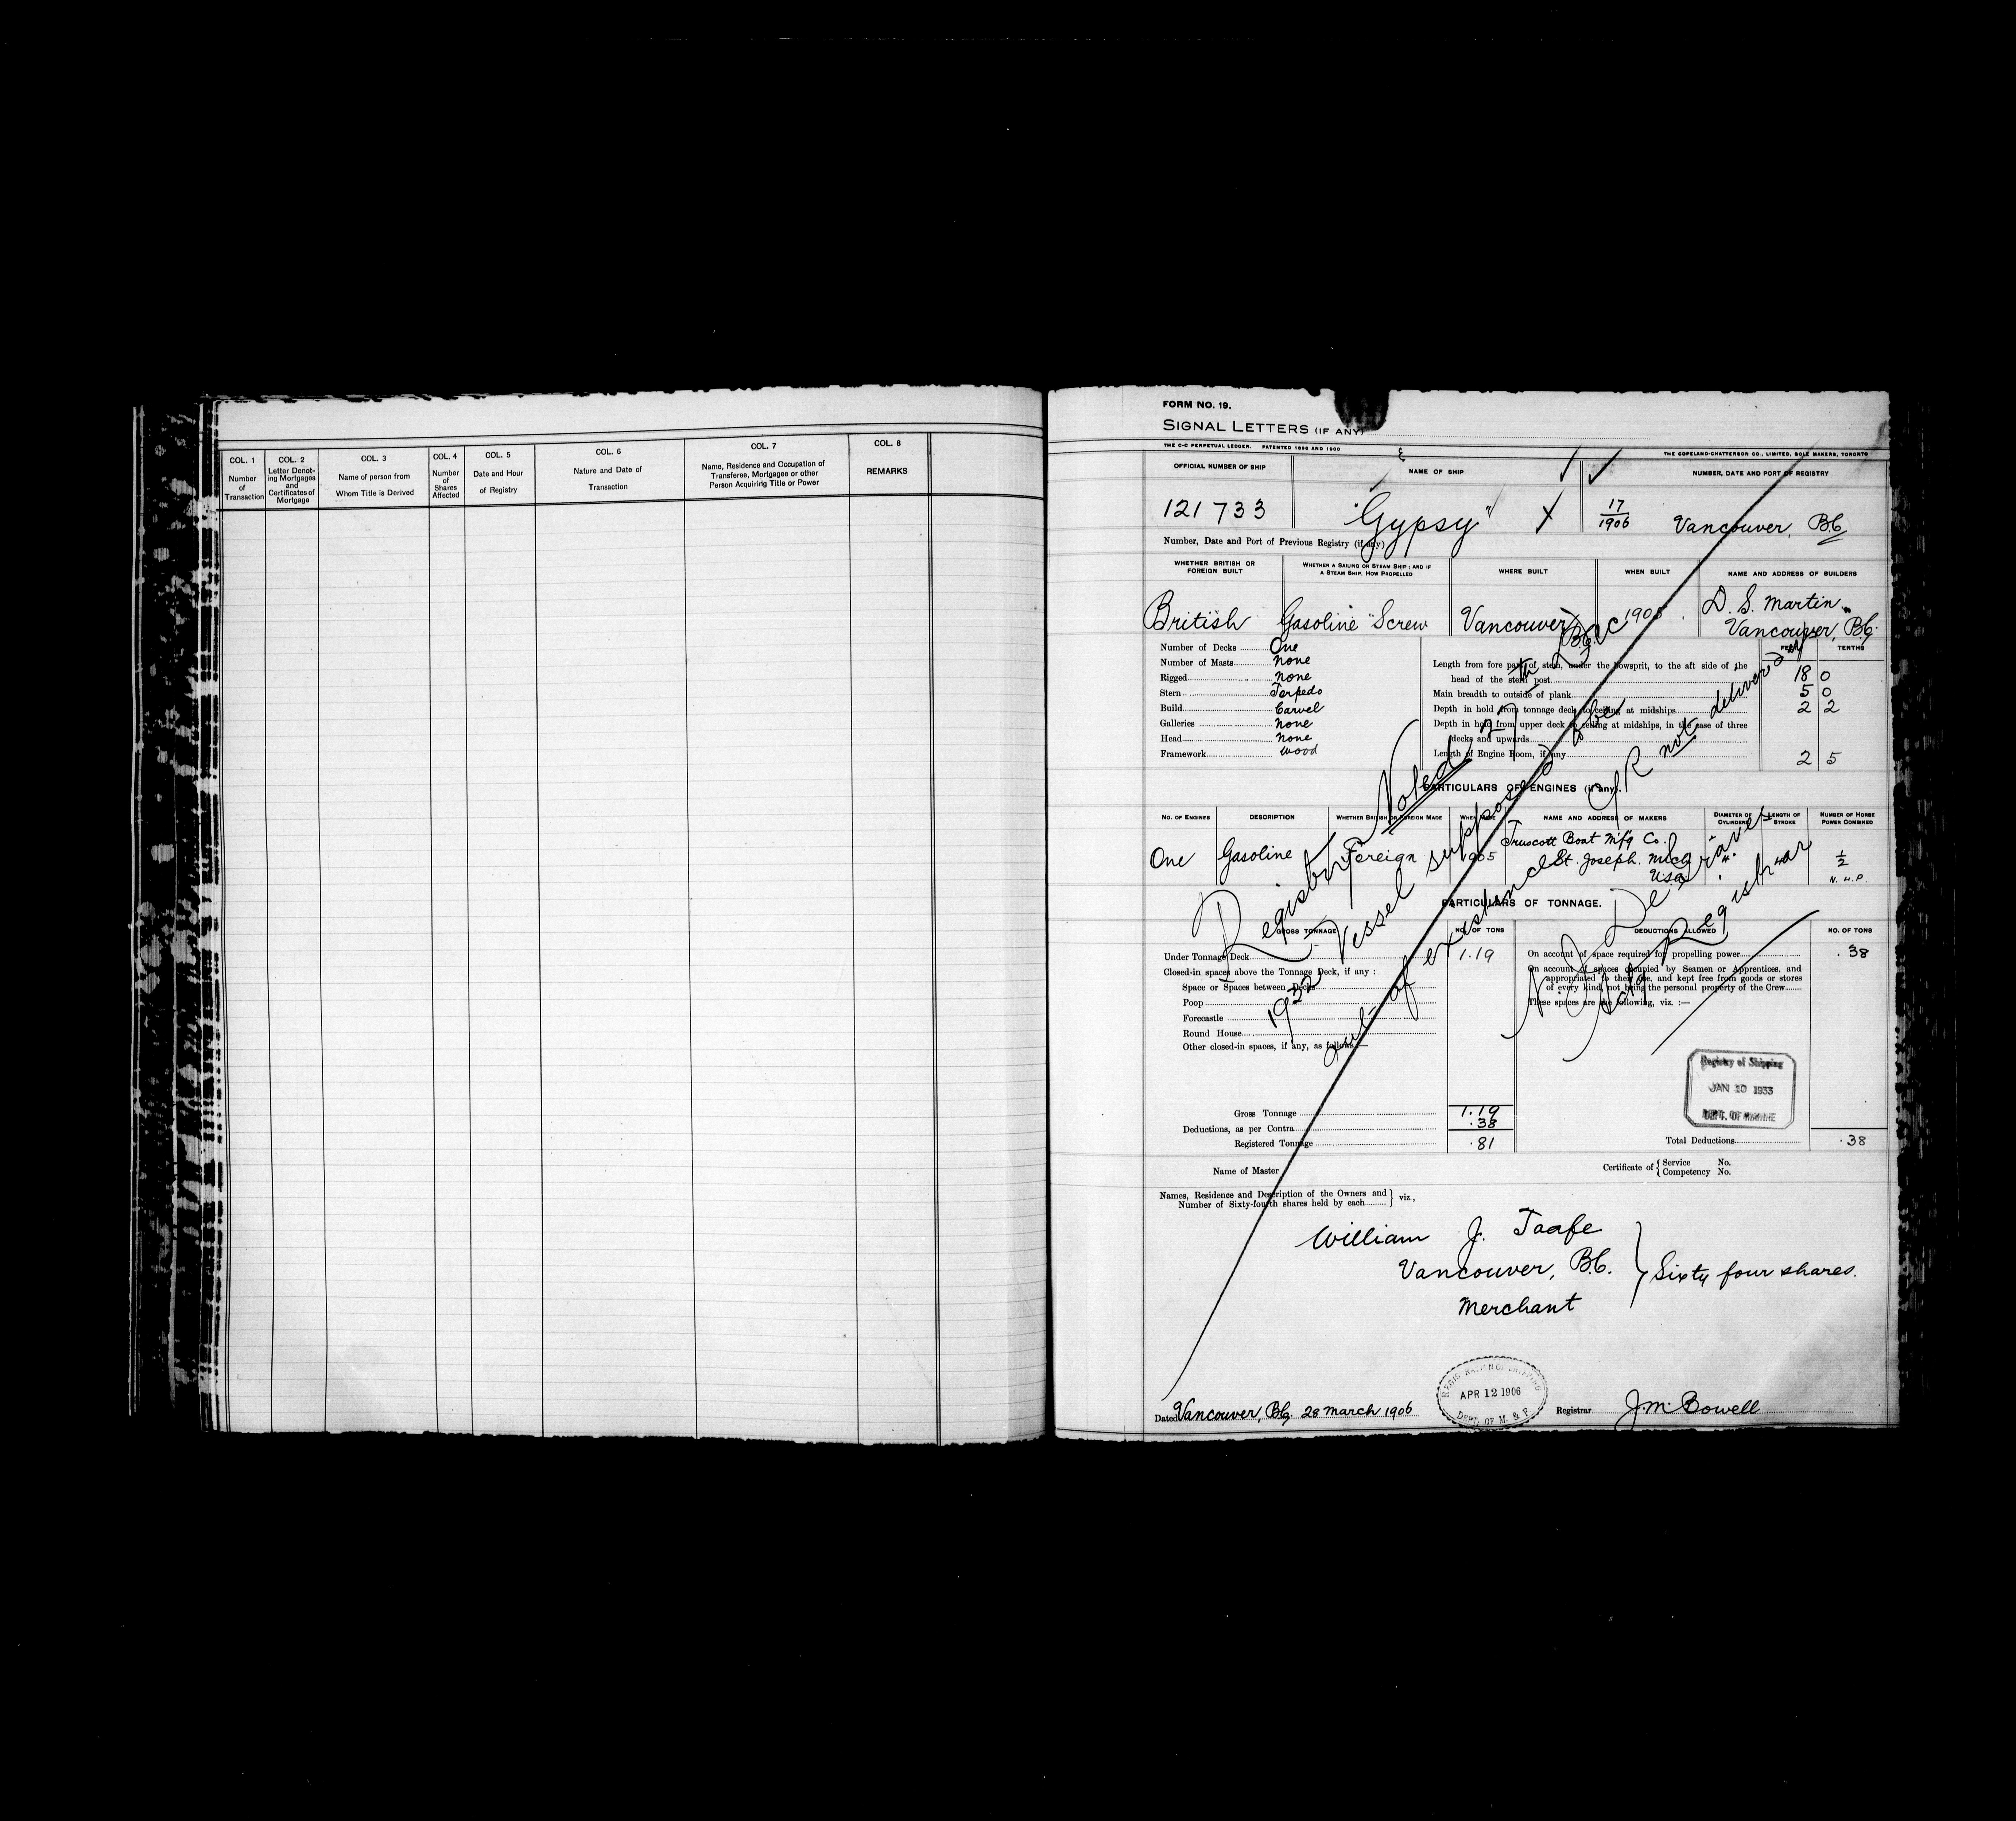 COL. 1
Number
of
Transaction
COL. 2
Letter Denot-
ing Mortgages
and
Certificates of
Mortgage
COL. 3
Name of person from
Whom Title is Derived
COL. 4
Number
of
Shares
Affected
COL. 5
Date and Hour
of Registry
COL. 6
Nature and Date of
Transaction
COL. 7
Name, Residence and Occupation of
Transferee, Mortgagee or other
Person Acquiring Title or Power
COL. 8
REMARKS
FORM NO. 19.
SIGNAL LETTERS (IF ANY)
THE C-C PERPETUAL LEDGER. PATENTED 1896 AND 1900
THE COPELAND-CHATTERSON CO., LIMITED, SOLE MAKERS, TORONTO
OFFICIAL NUMBER OF SHIP
NAME OF SHIP
NUMBER, DATE AND PORT OF REGISTRY
121733
"Gypsy"
17
1906
Vancouver, B.C.
Number, Date and Port of Previous Registry (if any)
WHETHER BRITISH OR
FOREIGN BUILT
WHETHER A SAILING OR STEAM SHIP; AND IF
A STEAM SHIP, HOW PROPELLED
WHERE BUILT
WHEN BUILT
NAME AND ADDRESS OF BUILDERS
British
Gasoline Screw
Vancouver
B.C.
D. S. Martin
Vancouver, B.C.
Number of Decks One
Number of Masts None
Rigged None
Stern Torpedo
Build Carvel
Galleries None
Head None
Framework Wood
FEET
TENTHS
Length from fore part of stem, under the bowsprit, to the aft side of the
head of the stern post 18 0
Main breadth to outside of plank 5 0
Depth in hold from tonnage deck to ceiling at midships 2 2
Depth in hold from upper deck to ceiling at midships, in the case of three
decks and upwards
Length of Engine Room, if any 2 5
PARTICULARS OF ENGINES (if any).
NO. OF ENGINES
DESCRIPTION
WHETHER BRITISH OR FOREIGN MADE
WHEN MADE
NAME AND ADDRESS OF MAKERS
DIAMETER OF
CYLINDERS
LENGTH OF
STROKE
NUMBER OF HORSE
POWER COMBINED
One
Gasoline
Foreign
1905
Truscott Boat Mfg Co.
St. Joseph. Mich
USA
4"
4"
1/2
N. H. P.
PARTICULARS OF TONNAGE.
GROSS TONNAGE
NO. OF TONS
DEDUCTIONS ALLOWED
NO. OF TONS
Under Tonnage Deck 1.19
Closed-in spaces above the Tonnage Deck, if any :
Space or Spaces between Decks
Poop
Forecastle
Round House
Other closed-in spaces, if any, as follows:—
On account of space required for propelling power .38
On account of spaces occupied by Seamen or Apprentices, and
appropriated to their use, and kept free from goods or stores
of every kind, not being the personal property of the Crew
These spaces are the following, viz. :—
Registry Noted 27th Dec
1932 Vessel supposed to be
out of existence C/R not delivered up
Registrar
Registry of Shipping
JAN 10 1933
DEPT. OF MARINE
Gross Tonnage 1.19
Deductions, as per Contra .38
Registered Tonnage .81
Total Deductions .38
Name of Master
Certificate of { Service No.
Competency No.
Names, Residence and Description of the Owners and
Number of Sixty-fourth shares held by each } viz.,
William J. Taafe
Vancouver, B.C. } Sixty four shares.
Merchant
APR 12 1906
DEPT. OF M. & F.
Dated Vancouver, B.C. 28 March 1906
Registrar J.M. Bowell